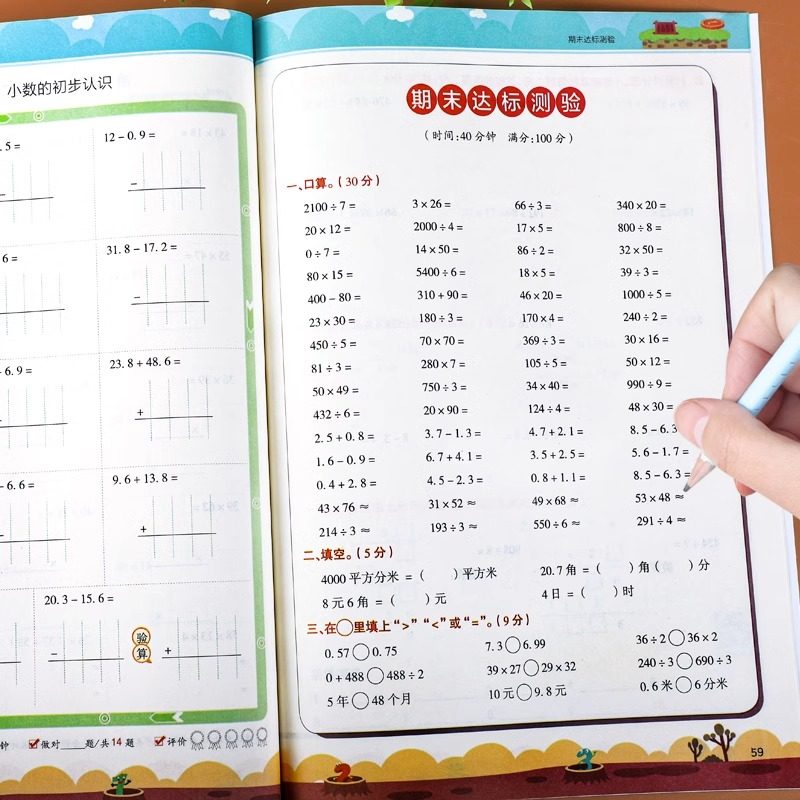 小数的初步认识
.5=
12-0.9=
6=
31.8-17.2=
-6.9=
23.8+48.6=
-6.6=
9.6+13.8=
20.3-15.6=
验算
钟 做对____题/共14题 评价
期末达标测验
期末达标测验
(时间:40分钟 满分:100分)
一、口算。(30分)
2100÷7= 3×26= 66÷3= 340×20=
20×12= 2000÷4= 17×5= 800÷8=
0÷7= 14×50= 86÷2= 32×50=
80×15= 5400÷6= 18×5= 39÷3=
400-80= 310+90= 46×20= 1000÷5=
23×30= 180÷3= 170×4= 240÷2=
450÷5= 70×70= 369÷3= 30×16=
81÷3= 280×7= 105÷5= 50×12=
50×49= 750÷3= 34×40= 990÷9=
432÷6= 20×90= 124÷4= 48×30=
2.5+0.8= 3.7-1.3= 4.7+2.1= 8.5-6.3
1.6-0.9= 6.7+4.1= 3.5+2.5= 5.6-1.7=
0.4+2.8= 4.5-2.3= 0.8+1.1= 8.5-6.3=
43×76≈ 31×52≈ 49×68≈ 53×48≈
214÷3≈ 193÷3≈ 550÷6≈ 291÷4≈
二、填空。(5分)
4000平方分米=( )平方米 20.7角=( )角( )分
8元6角=( )元 4日=( )时
三、在○里填上“>”“<”或“=”。(9分)
0.57○0.75 7.3○6.99 36÷2○36×2
0+488○488÷2 39×27○29×32 240÷3○690÷3
5年○48个月 10元○9.8元 0.6米○6分米
59